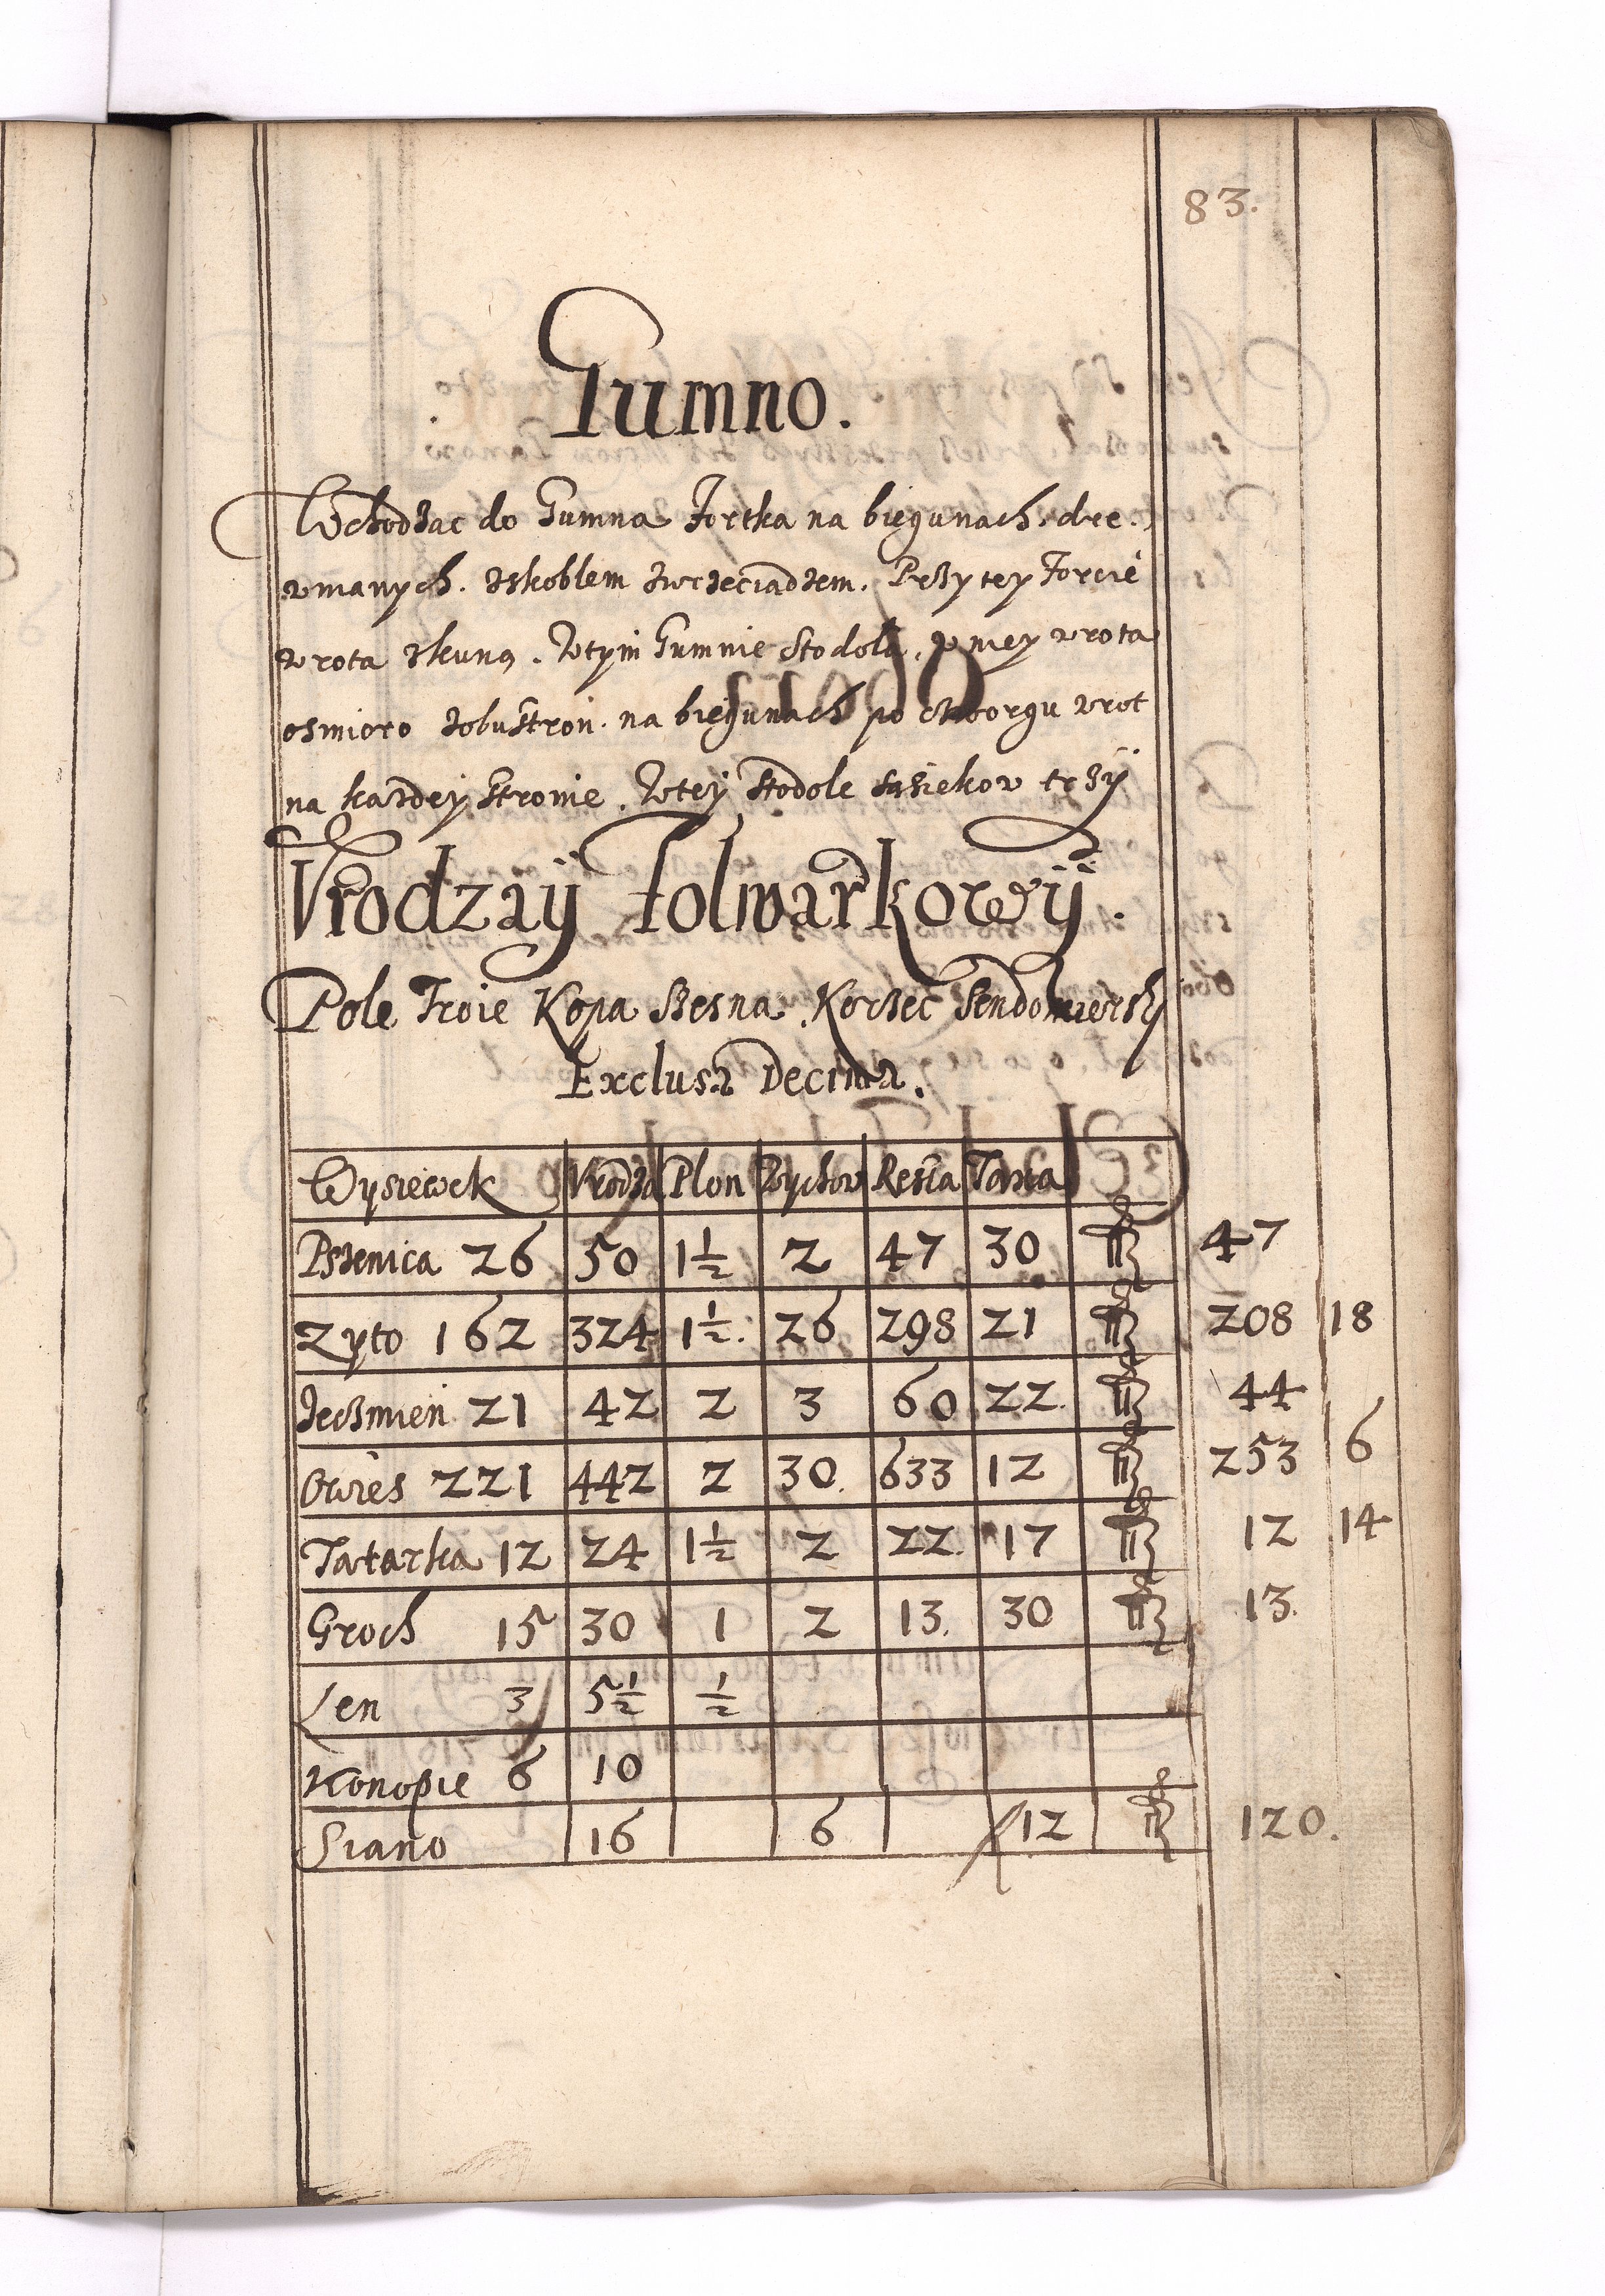 83.
Gumno.
Wchodząc do Gumna Fortka na biegunach dre-
wnianych. zskoblem zwrzeciądzem. Przy tey Forcie
wrota zkuną. Wtym Gumnie Stodoła, w niey wrota
ośmioro zobustron. na biegunach po czworgu wrot
na każdey stronie. Wtey Stodole sąsiekow trzy
Vrodzaÿ Folwarkowÿ.
Pole Troie Kopa Szesna. Korzec Sendomiersky
Exclusa Decima.
Wysiewek Vrodza Plon Wychow Resta Taxa
Pszenica 26 50 1½ 2 47 30 47
Zyto 162 324 1½. 26 298 21 208 18
Jeczmien 21 42 2 3 60 22. 44
Owies 221 442 2 30. 633 12 253 6
Tatarka 12 24 1½ 2 22. 17 12 14
Groch 15 30 1 2 13. 30 13.
Len 3 5½ ½
Konopie 6 10
Siano 16 6 12 120.